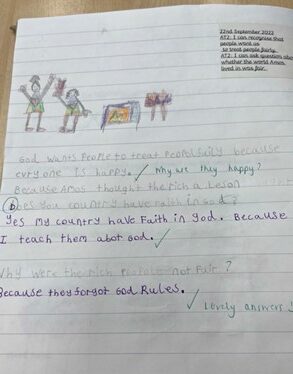 22nd September 2022
AT2: I can recognise that
people want us
to treat people fairly.
AT2: I can ask question abou
whether the world Amos
lived in was fair.
God wants People to treat PeoPol faily because
evry one is happy. ✓ Why were they happy?
Because Amos thought the rich a leson
Does you country have faith in God?
Yes my country have Faith in God. Because
I teach them abot God. ✓
Why were the rich People not Fair?
Because they forgot God Rules.
✓ lovely answers